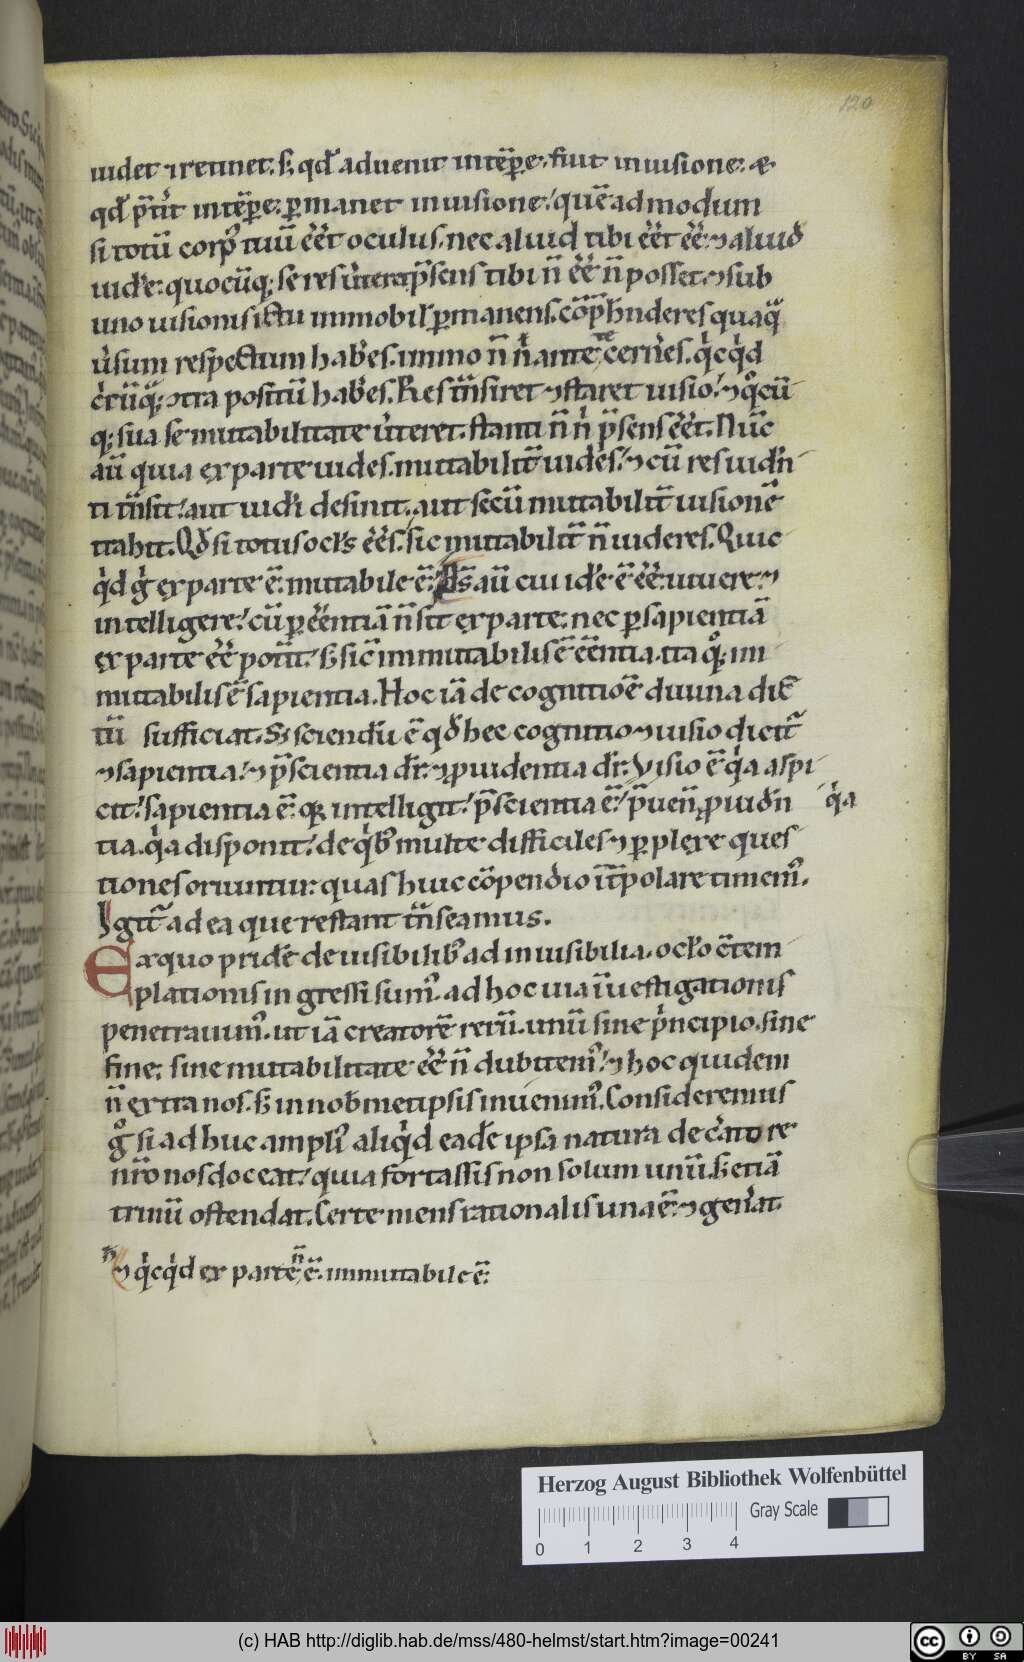 120
uidet ⁊ retinet. s; qd̃ aduenit intẽpore. fuit inuisione. &
qd̃ p̃tit intẽpore. ꝑmanet inuisione. quẽadmodum
si totũ corp᷒ tuũ eẽt oculus. nec aliud tibi eẽt eẽ. ⁊ aliud
uidẽ. quocũq; se res uerteret p̃sens tibi ñ eẽ ñ posset. ⁊ sub
uno uisionis ictu immobilit̃ ꝑmanens. cõp̃hnderes quaq̃
uersum respectum habẽs. immo ñ ñ ante te cernẽs. q̇cq̇d
circũq̃q; ɔtra positũ habẽs. Res trãsiret ⁊ staret uisio. ⁊ qͦcũ
q; sua se mutabilitate uerteret. stanti ñ ñ p̃sens eẽt. Nũc
aũ quia ex parte uides. mutabilit̃ uides. ⁊ cũ res uidñ
ti trãsit. aut uideri desinit. aut secũ mutabilit̃ uisionẽ
trahit. Qd̃ si totus ocl̃s eẽs. sic mutabilit̃ ñ uideres. Quic
q̇d g̃ ex parte ẽ. mutabile ẽ. Ds̃ aũ cui idẽ ẽ eẽ. uiuere. ⁊
intelligere. cũ ꝑ eẽntiã ñ sit ex parte. nec ꝑ sapientiã
ex parte eẽ potuit. S; sic̃ immutabilis ẽ eẽntia. ita qͦq; im
mutabilis ẽ sapientia. Hoc iã de cognitiõe diuina dic̃
tũ sufficiat. S; sciendũ ẽ qd̃ hec cognitio ⁊ uisio dicit̃
⁊ sapientia. ⁊ p̃scientia dr̃. ⁊ ꝓuidentia dr̃. Visio ẽ q̇a aspi
cit. sapientia ẽ. q̇a intelligit. p̃scientia ẽ. q̇a p̃uenit ꝓuidñ
tia. q̇a disponit. de q̇b; multe difficiles ⁊ ꝑplexe ques
tiones oriuntur. quas huic cõpendio ĩt̃polare timem᷒.
Igit̃ ad ea que restant trãseamus.
Ex quo pridẽ de uisibilib; ad inuisibilia. ocl̃o cõtem
plationis ingressi sum᷒. ad hoc uia ĩuestigationis
penetrauim᷒. ut iã creatorẽ rerũ. unũ sine p̃ncipio. sine
fine. sine mutabilitate eẽ ñ dubitem᷒. ⁊ hoc quidem
ñ extra nos. S; in nobmetipsis inuenim᷒. Consideremus
gͦ si adhuc ampli᷒ aliq̇d eadẽ ipsa natura de creatore
nr̃o nos doceat. quia fortassis non solum unũ. S; etiã
trinũ ostendat. Certe mens rationalis una ẽ. ⁊ generat
⁊ q̇cq̇d ex parte ñ ẽ. immutabile ẽ.
Herzog August Bibliothek Wolfenbüttel
Gray Scale
0 1 2 3 4
(c) HAB http://diglib.hab.de/mss/480-helmst/start.htm?image=00241
cc BY SA